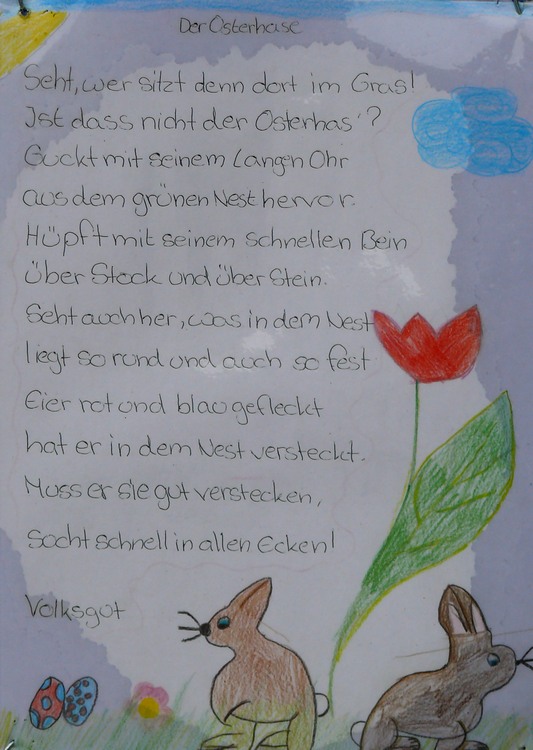 Der Osterhase
Seht, wer sitzt denn dort im Gras!
Ist dass nicht der Osterhas'?
Guckt mit seinem Langen Ohr
aus dem grünen Nest hervor.
Hüpft mit seinem schnellen Bein
über Stock und über Stein.
Seht auch her, was in dem Nest
liegt so rund und auch so fest
Eier rot und blau gefleckt
hat er in dem Nest versteckt.
Muss er sie gut verstecken,
Sucht schnell in allen Ecken!
Volksgut